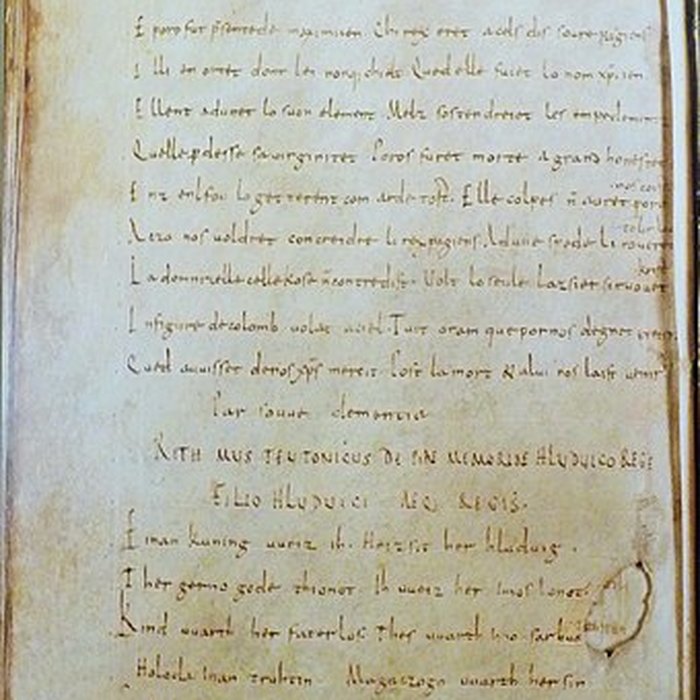 E poro fut p̄sentede maximiien Chi rex eret acels dis soure pagiens
I lli enortet dont lei nonq chielt Qued elle fuiet lo nom xp̄iien
E llent adunet lo suon element Melz sostendreiet les empedementz
Quelle pdesse sauirginitet Poros furet morte a grand honestet
nos coist
E nz enl fou lo getterent com arde tost. Elle colpes ñ auret poro
tolir lo
A czo nos uoldret concreidre li rex pagiens. Ad une spede li roueret
krist
L a domnizelle celle kose ñ contredist. Volt lo seule lazsier si ruouet
I n figure de colomb uolat aciel. Tuit oram que por nos degnet preier
Qued auuisset de nos xp̄s mercit Post la mort & alui nos laist uenir
Par souue clementia
RITHMUS TEUTONICUS DE PIAE MEMORIAE HLUDUICO REGE
FILIO HLUDUICI AEQ; REGIS.
E inan kuning uueiz ih. Heizsit her hluduig .
T her gerno gode thionot. Ih uueiz her imos lonot.
Kind uuarth her faterlos. Thes uuarth imo sar buoz
Holoda inan truhtin Magaczogo uuarth her sin